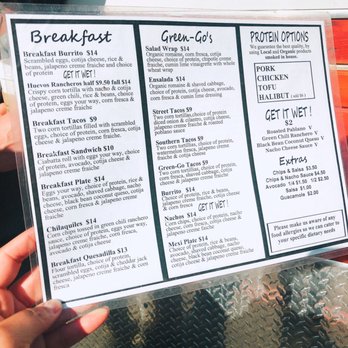 Breakfast
Breakfast Burrito $14
Scrambled eggs, corn fresca, rice & beans,
jalapeno creme fraiche and choice
of protein GET IT WET!
Huevos Rancheros half $9.50 full $14
Crispy corn tortilla with nacho &
cheese, green chili, rice & beans, choice of
protein, eggs your way, corn fresca &
creme fraiche
Breakfast Tacos $9
Two corn tortillas filled with scrambled
eggs, choice of protein, corn fresca,
cotija cheese, and jalapeno creme
fraiche
Breakfast Sandwich $10
Ciabatta roll with eggs your way, choice of
protein, avocado, cotija cheese &
jalapeno creme fraiche
Breakfast Plate $14
Eggs your way, choice of protein, rice &
beans, avocado, shaved cabbage, nacho
cheese, black bean coconut queso, corn
fresca, cotija cheese & jalapeno creme
fraiche
Chilaquiles $14
Corn chips tossed in green chili ranchero
sauce, choice of protein, eggs your way,
corn fresca, avocado, cotija cheese &
jalapeno creme fraiche
Breakfast Quesadilla $13
Flour tortilla, scrambled eggs, choice of
protein, cotija & cheddar jack
cheese, jalapeno creme fraiche & corn
fresca
Green-Go's
Salad Wrap $14
Organic romaine, corn fresca, cotija
cheese, choice of protein, chipotle creme
fraiche, cumin lime vinaigrette with whole
wheat wrap
Ensalada $14
Organic romaine & shaved cabbage,
choice of protein, avocado, corn fresca,
cotija cheese & jalapeno creme fraiche
Street Tacos $9
Two corn tortillas, choice of protein,
minced onion, cilantro, cotija cheese,
jalapeno creme fraiche & roasted
poblano sauce
Southern Tacos $9
Two corn tortillas, choice of protein,
avocado, corn fresca, cotija cheese &
jalapeno creme fraiche
Green-Go Tacos $9
Two corn tortillas, choice of protein,
avocado, shaved cabbage, cotija cheese,
jalapeno creme fraiche
Burrito $14
Choice of protein, rice & beans,
jalapeno creme fraiche & corn
fresca GET IT WET!
Nachos $14
Corn chips, choice of protein, nacho
cheese, avocado, corn fresca, cotija cheese &
jalapeno creme fraiche
Mexi Plate $14
Choice of protein, rice & beans,
avocado, shaved cabbage, nacho
cheese, black bean coconut queso, corn fresca,
cotija cheese & jalapeno creme fraiche
PROTEIN OPTIONS
We guarantee the best quality, by
using Local and Organic products
smoked in house.
PORK
CHICKEN
TOFU
HALIBUT
GET IT WET!
$2
Roasted Poblano V
Green Chili Ranchero V
Black Bean Coconut Queso V
Nacho Cheese Sauce V
Extras
Chips & Salsa $3.50
Chips & Nacho Sauce $4.50
Avocado 1/4 $1.50 1/2 $2.50
Salsa $1.00
Guacamole $2.00
Please make us aware of any
food allergies so we can cater to
your specific dietary needs